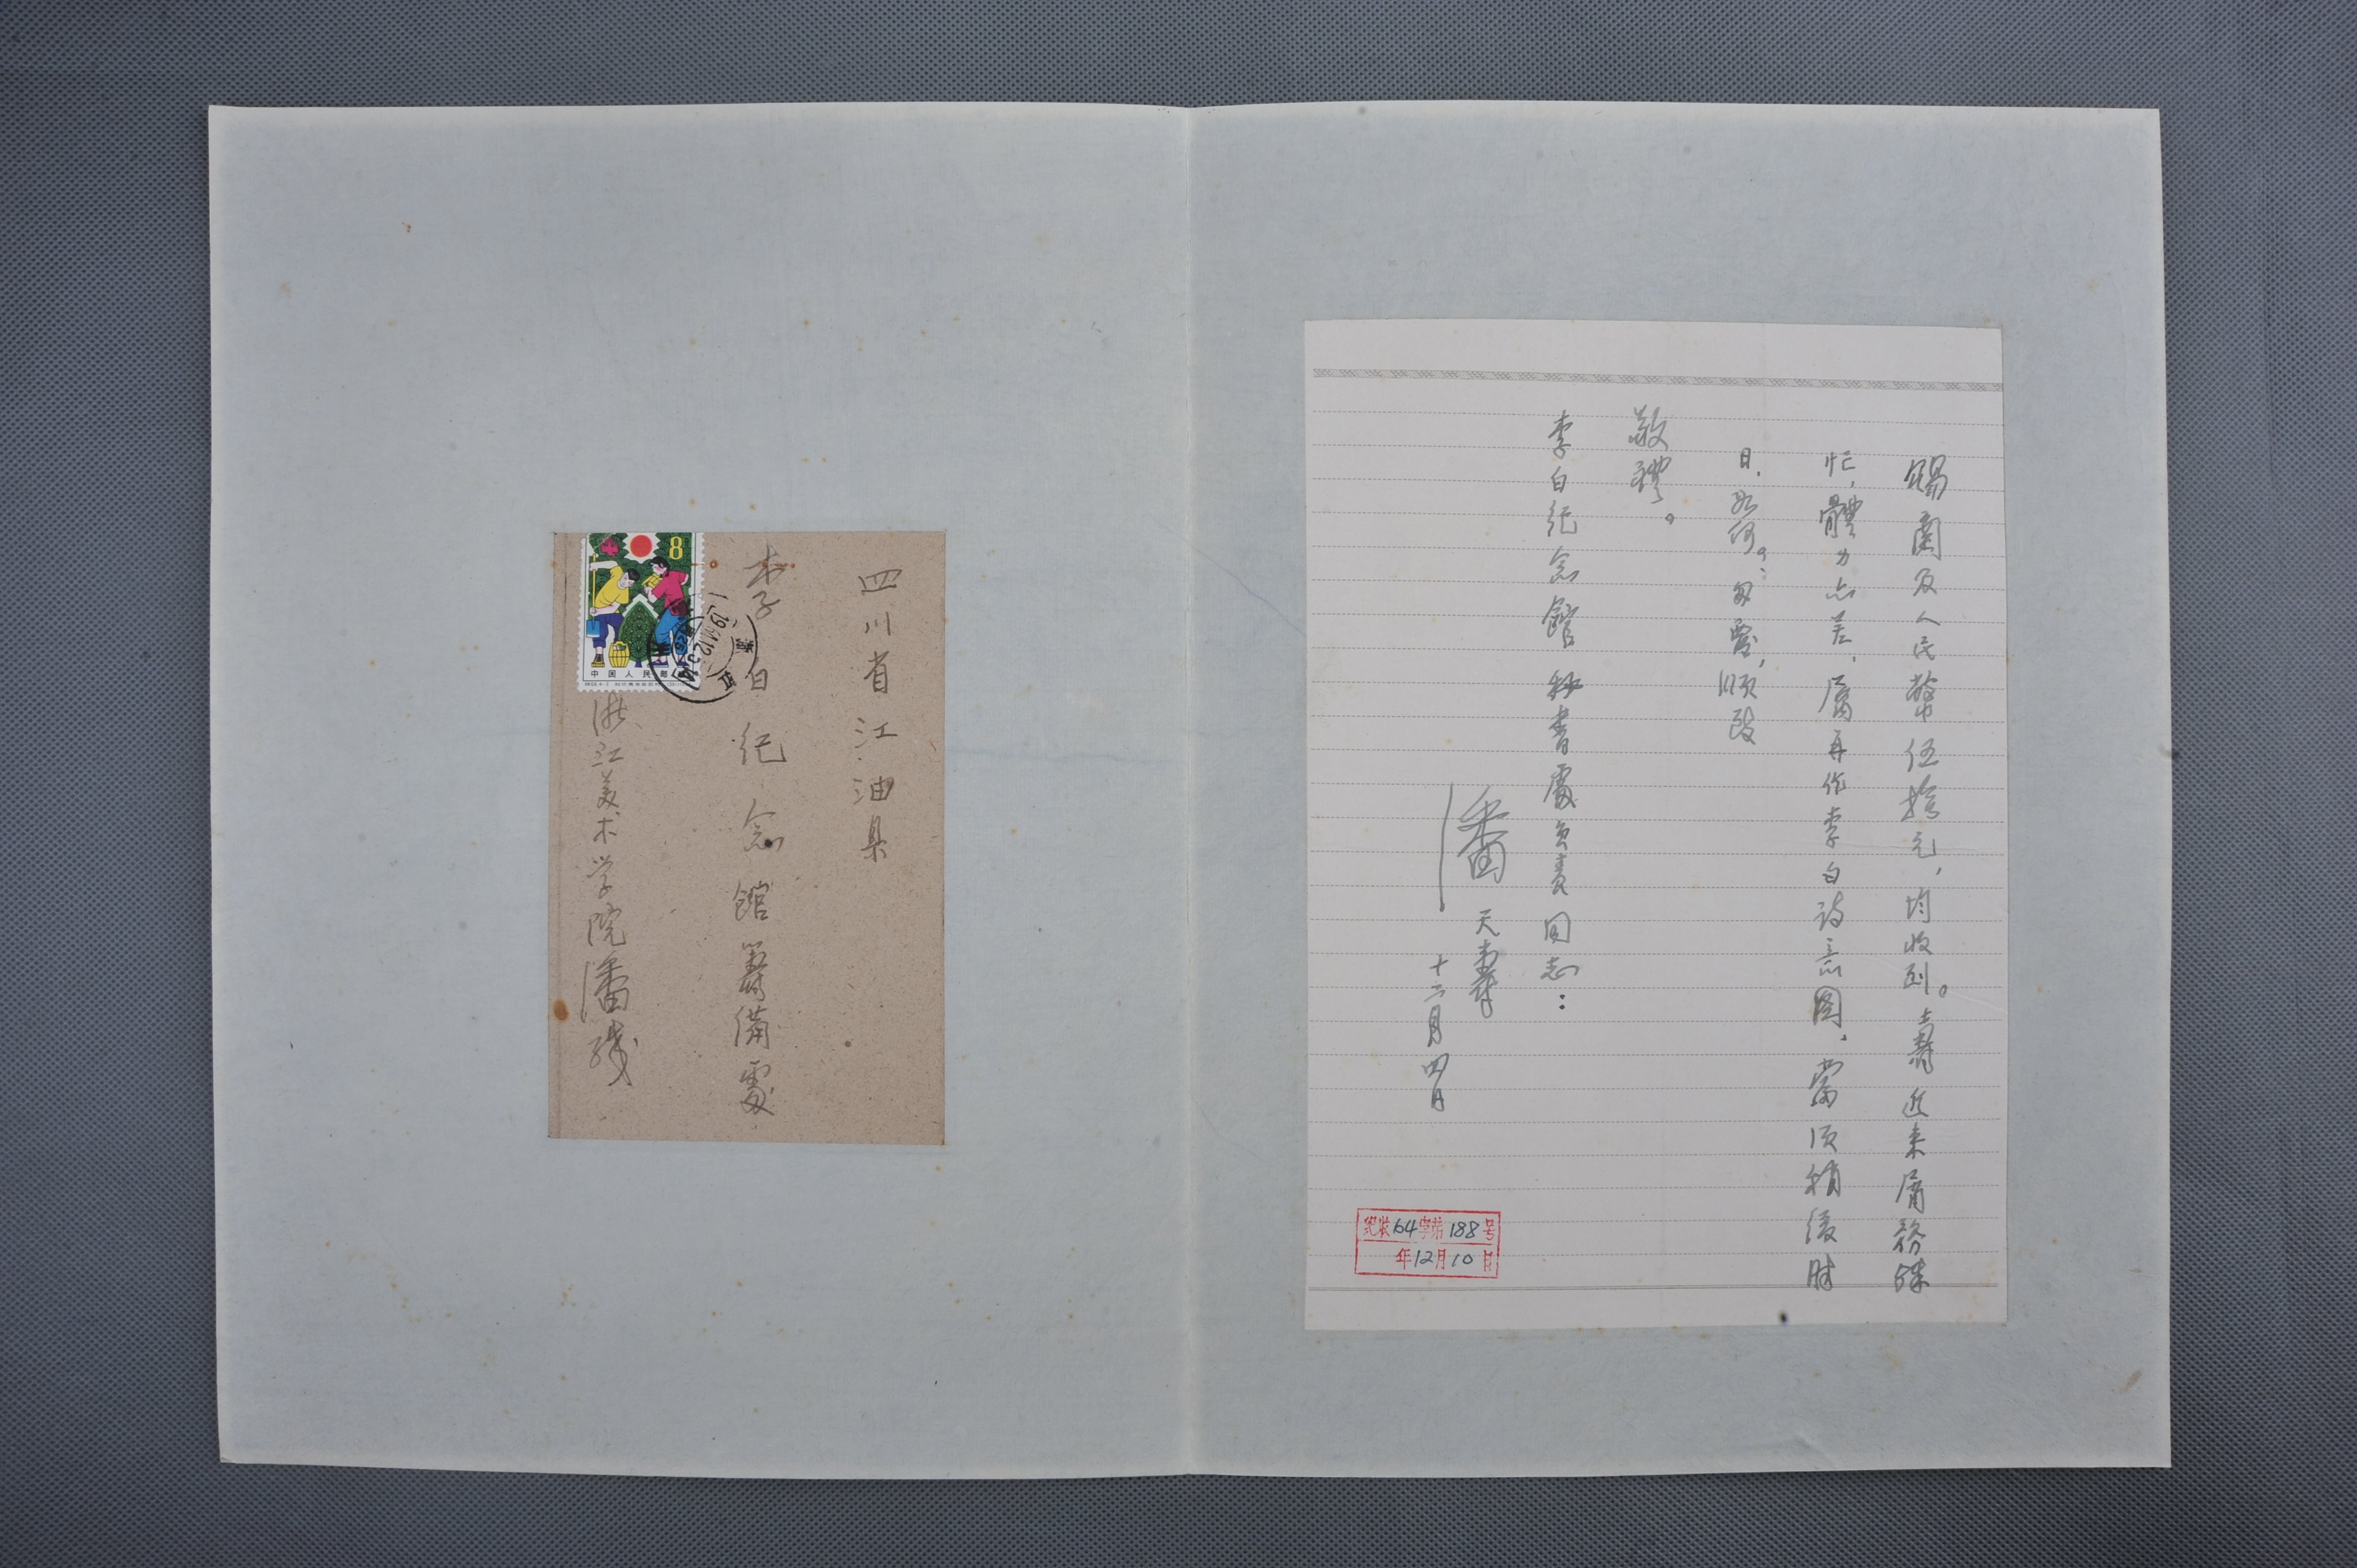 賜蘭及人民幣伍拾元，均收到。壽近来屬務殊
忙，體力点差，屬再作李白詩意图，當须稍緩時
日，如何。：匆覆，順致
敬禮。
李白纪念館秘書處负责同志：
潘天壽
十二月四日
纪收64字第188号
年12月10日
四川省江油县
李白纪念館籌備處
浙江美术学院潘緘
8
中国人民邮政
浙江